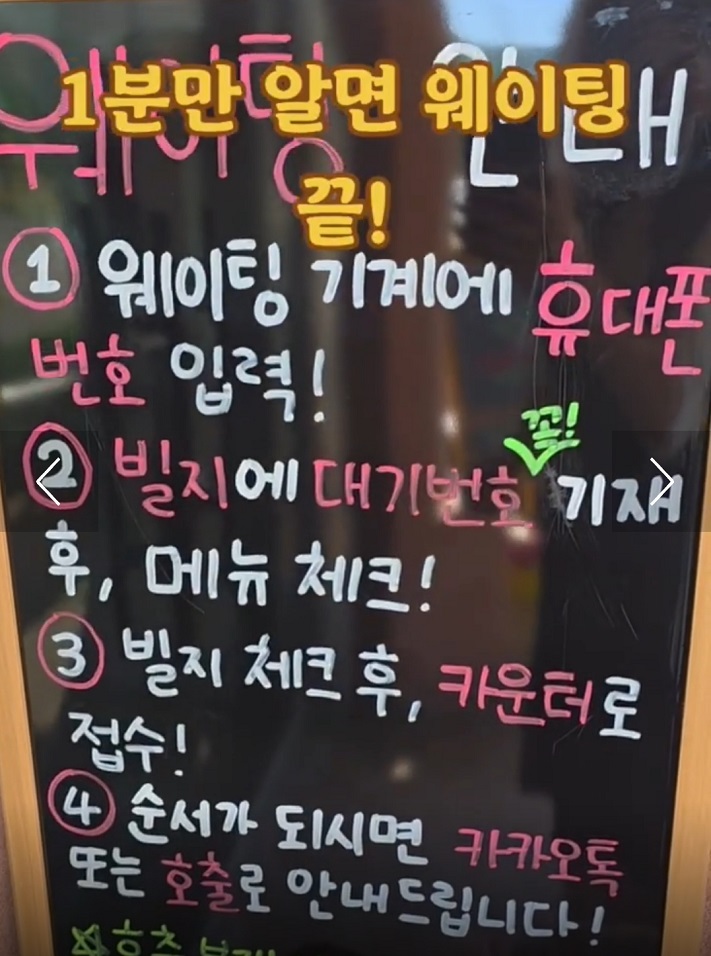 1분만 알면 웨이팅
끝!
웨이팅 안내
① 웨이팅 기계에 휴대폰
번호 입력!
꼭!
② 빌지에 대기번호 기재
후, 메뉴 체크!
③ 빌지 체크 후, 카운터로
접수!
④ 순서가 되시면 카카오톡
또는 호출로 안내드립니다!